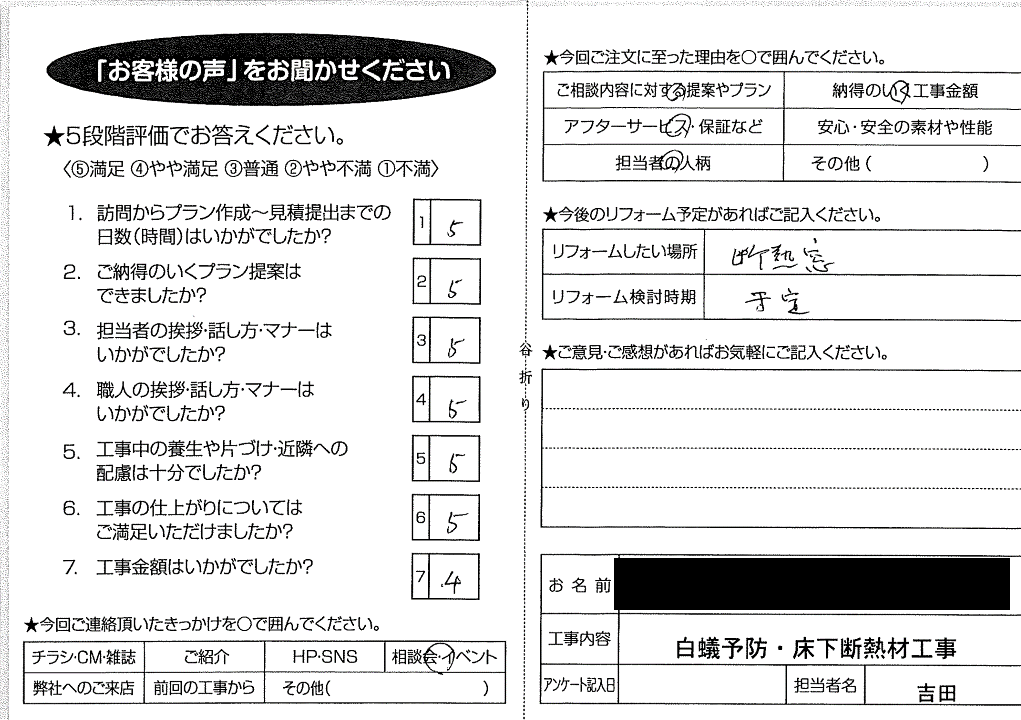 「お客様の声」をお聞かせください
★5段階評価でお答えください。
〈⑤満足 ④やや満足 ③普通 ②やや不満 ①不満〉
1. 訪問からプラン作成～見積提出までの
日数(時間)はいかがでしたか?
1 5
2. ご納得のいくプラン提案は
できましたか?
2 5
3. 担当者の挨拶・話し方・マナーは
いかがでしたか?
3 5
4. 職人の挨拶・話し方・マナーは
いかがでしたか?
4 5
5. 工事中の養生や片づけ・近隣への
配慮は十分でしたか?
5 5
6. 工事の仕上がりについては
ご満足いただけましたか?
6 5
7. 工事金額はいかがでしたか?
7 4
★今回ご連絡頂いたきっかけを○で囲んでください。
チラシ・CM・雑誌 ご紹介 HP・SNS 相談会・イベント
弊社へのご来店 前回の工事から その他( )
谷折り
★今回ご注文に至った理由を○で囲んでください。
ご相談内容に対する提案やプラン 納得のいく工事金額
アフターサービス・保証など 安心・安全の素材や性能
担当者の人柄 その他( )
★今後のリフォーム予定があればご記入ください。
リフォームしたい場所 断熱窓
リフォーム検討時期 予定
★ご意見・ご感想があればお気軽にご記入ください。
お名前
工事内容 白蟻予防・床下断熱材工事
アンケート記入日 担当者名 吉田